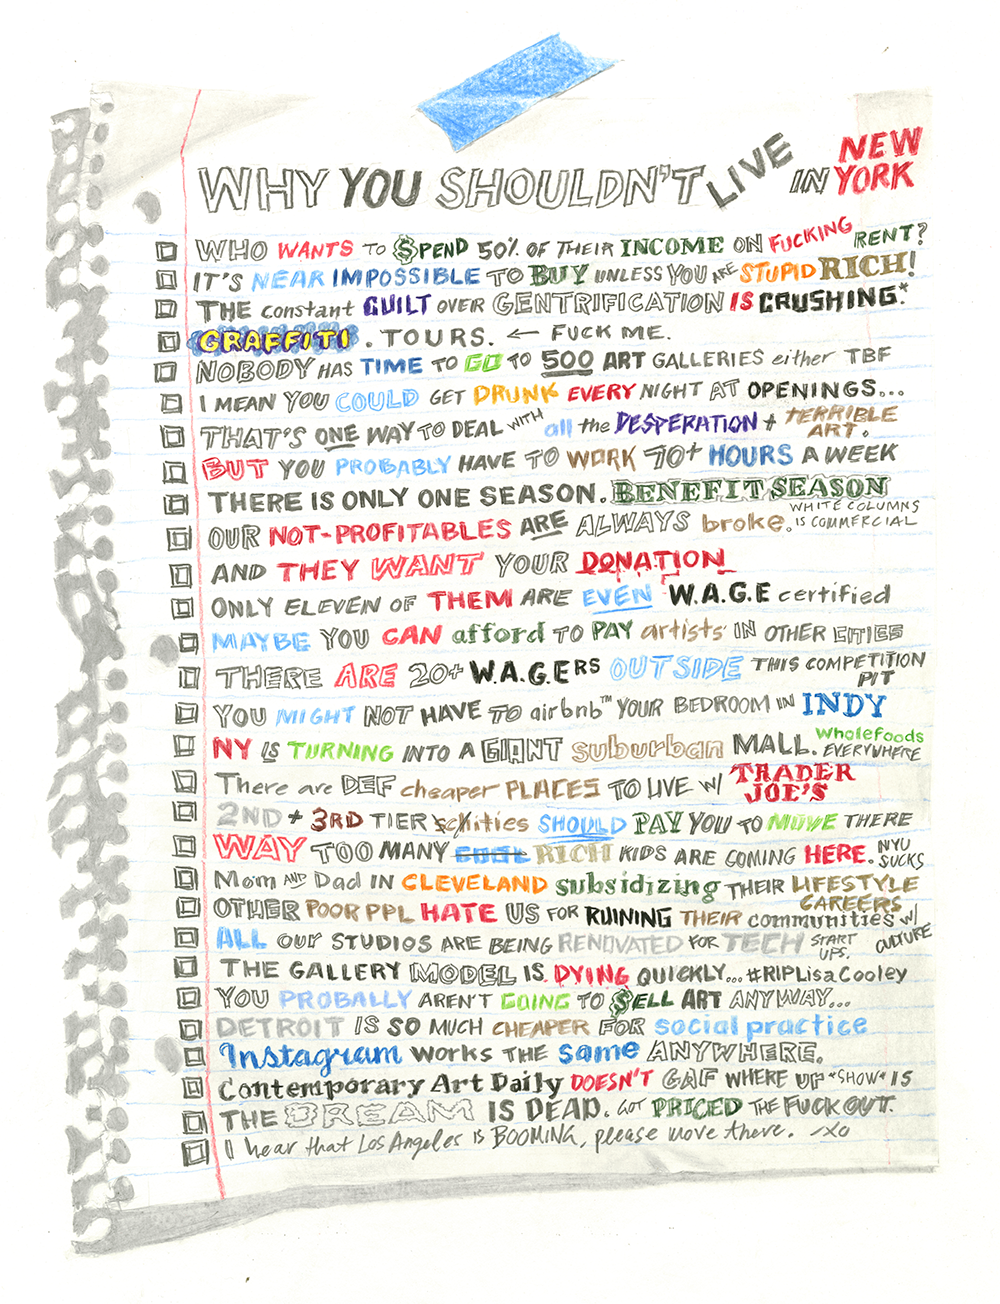 WHY YOU SHOULDN'T LIVE IN NEW YORK
WHO WANTS TO $PEND 50% OF THEIR INCOME ON FUCKING RENT?
IT'S NEAR IMPOSSIBLE TO BUY UNLESS YOU ARE STUPID RICH!
THE constant GUILT OVER GENTRIFICATION IS CRUSHING.*
GRAFFITI. TOURS. ← FUCK ME.
NOBODY HAS TIME TO GO TO 500 ART GALLERIES either TBF
I MEAN YOU COULD GET DRUNK EVERY NIGHT AT OPENINGS...
THAT'S ONE WAY TO DEAL WITH all the DESPERATION + TERRIBLE ART.
BUT YOU PROBABLY HAVE TO WORK 70+ HOURS A WEEK
THERE IS ONLY ONE SEASON. BENEFIT SEASON
OUR NOT-PROFITABLES ARE ALWAYS broke. WHITE COLUMNS IS COMMERCIAL
AND THEY WANT YOUR DONATION
ONLY ELEVEN OF THEM ARE EVEN W.A.G.E certified
MAYBE YOU CAN afford TO PAY artists' IN OTHER CITIES
THERE ARE 20+ W.A.G.ERS OUTSIDE THIS COMPETITION PIT
YOU MIGHT NOT HAVE TO airbnb™ YOUR BEDROOM IN INDY
NY IS TURNING INTO A GIANT suburban MALL. Wholefoods EVERYWHERE
There are DEF cheaper PLACES TO LIVE W/ TRADER JOE'S
2ND + 3RD TIER cities SHOULD PAY YOU TO MOVE THERE
WAY TOO MANY COOL RICH KIDS ARE COMING HERE. NYU SUCKS
Mom AND Dad IN CLEVELAND subsidizing THEIR LIFESTYLE CAREERS
OTHER POOR PPL HATE US FOR RUINING THEIR communities W/ CULTURE
ALL OUR STUDIOS ARE BEING RENOVATED FOR TECH START UPS.
THE GALLERY MODEL IS DYING QUICKLY... #RIPLisaCooley
YOU PROBALLY AREN'T GOING TO $ELL ART ANYWAY...
DETROIT IS SO MUCH CHEAPER FOR social practice
Instagram WORKS THE same ANYWHERE.
Contemporary Art Daily DOESN'T GAF WHERE UR "SHOW" IS
THE DREAM IS DEAD. GOT PRICED THE FUCK OUT.
I hear that Los Angeles is BOOMING, please move there. -xo